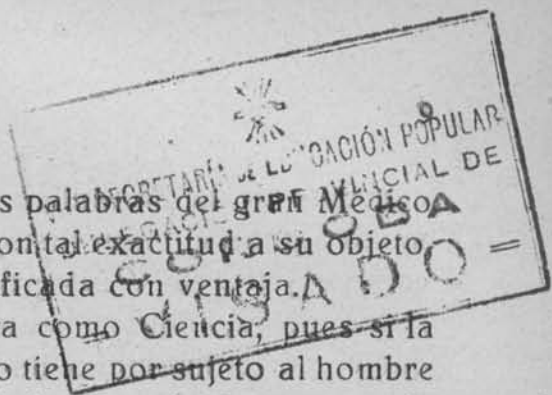 9
SECRETARÍA DE EDUCACIÓN POPULAR
PROVINCIAL DE
CÓRDOBA
= VISADO =
s palabras del gran Médico
on tal exactitud a su objeto
ificada con ventaja.
a como Ciencia, pues si la
o tiene por sujeto al hombre